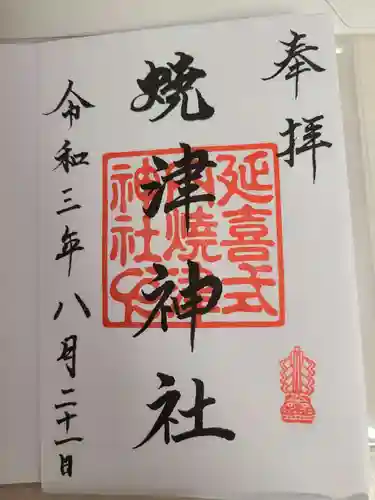 奉拝
焼津神社
延喜式
内焼津
神社
令和三年八月二十一日